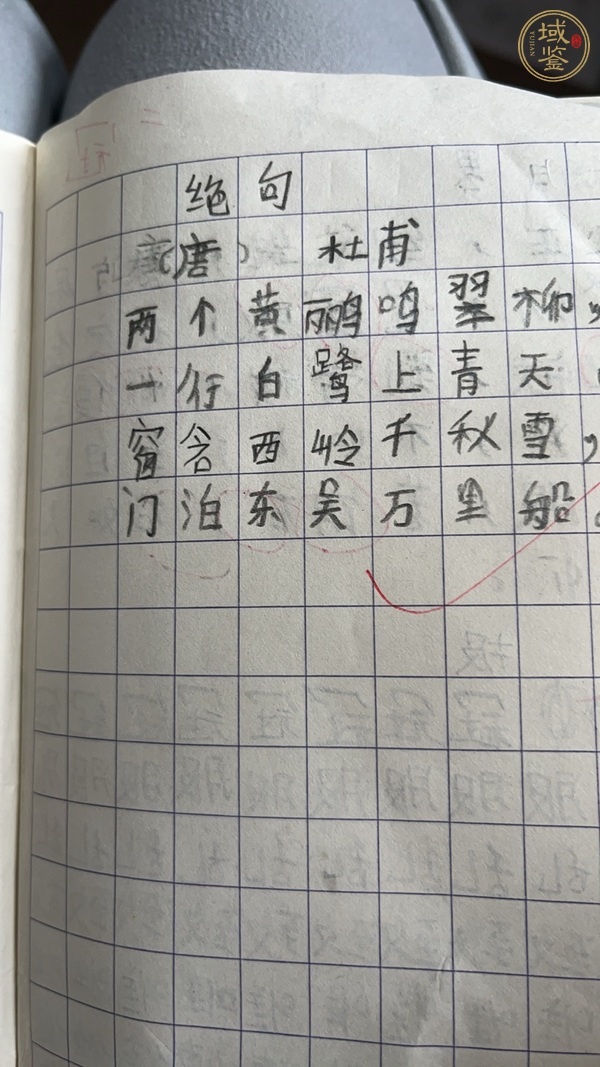 域鉴
YUJIAN
绝句
（唐）杜甫
两个黄鹂鸣翠柳，
一行白鹭上青天。
窗含西岭千秋雪，
门泊东吴万里船。